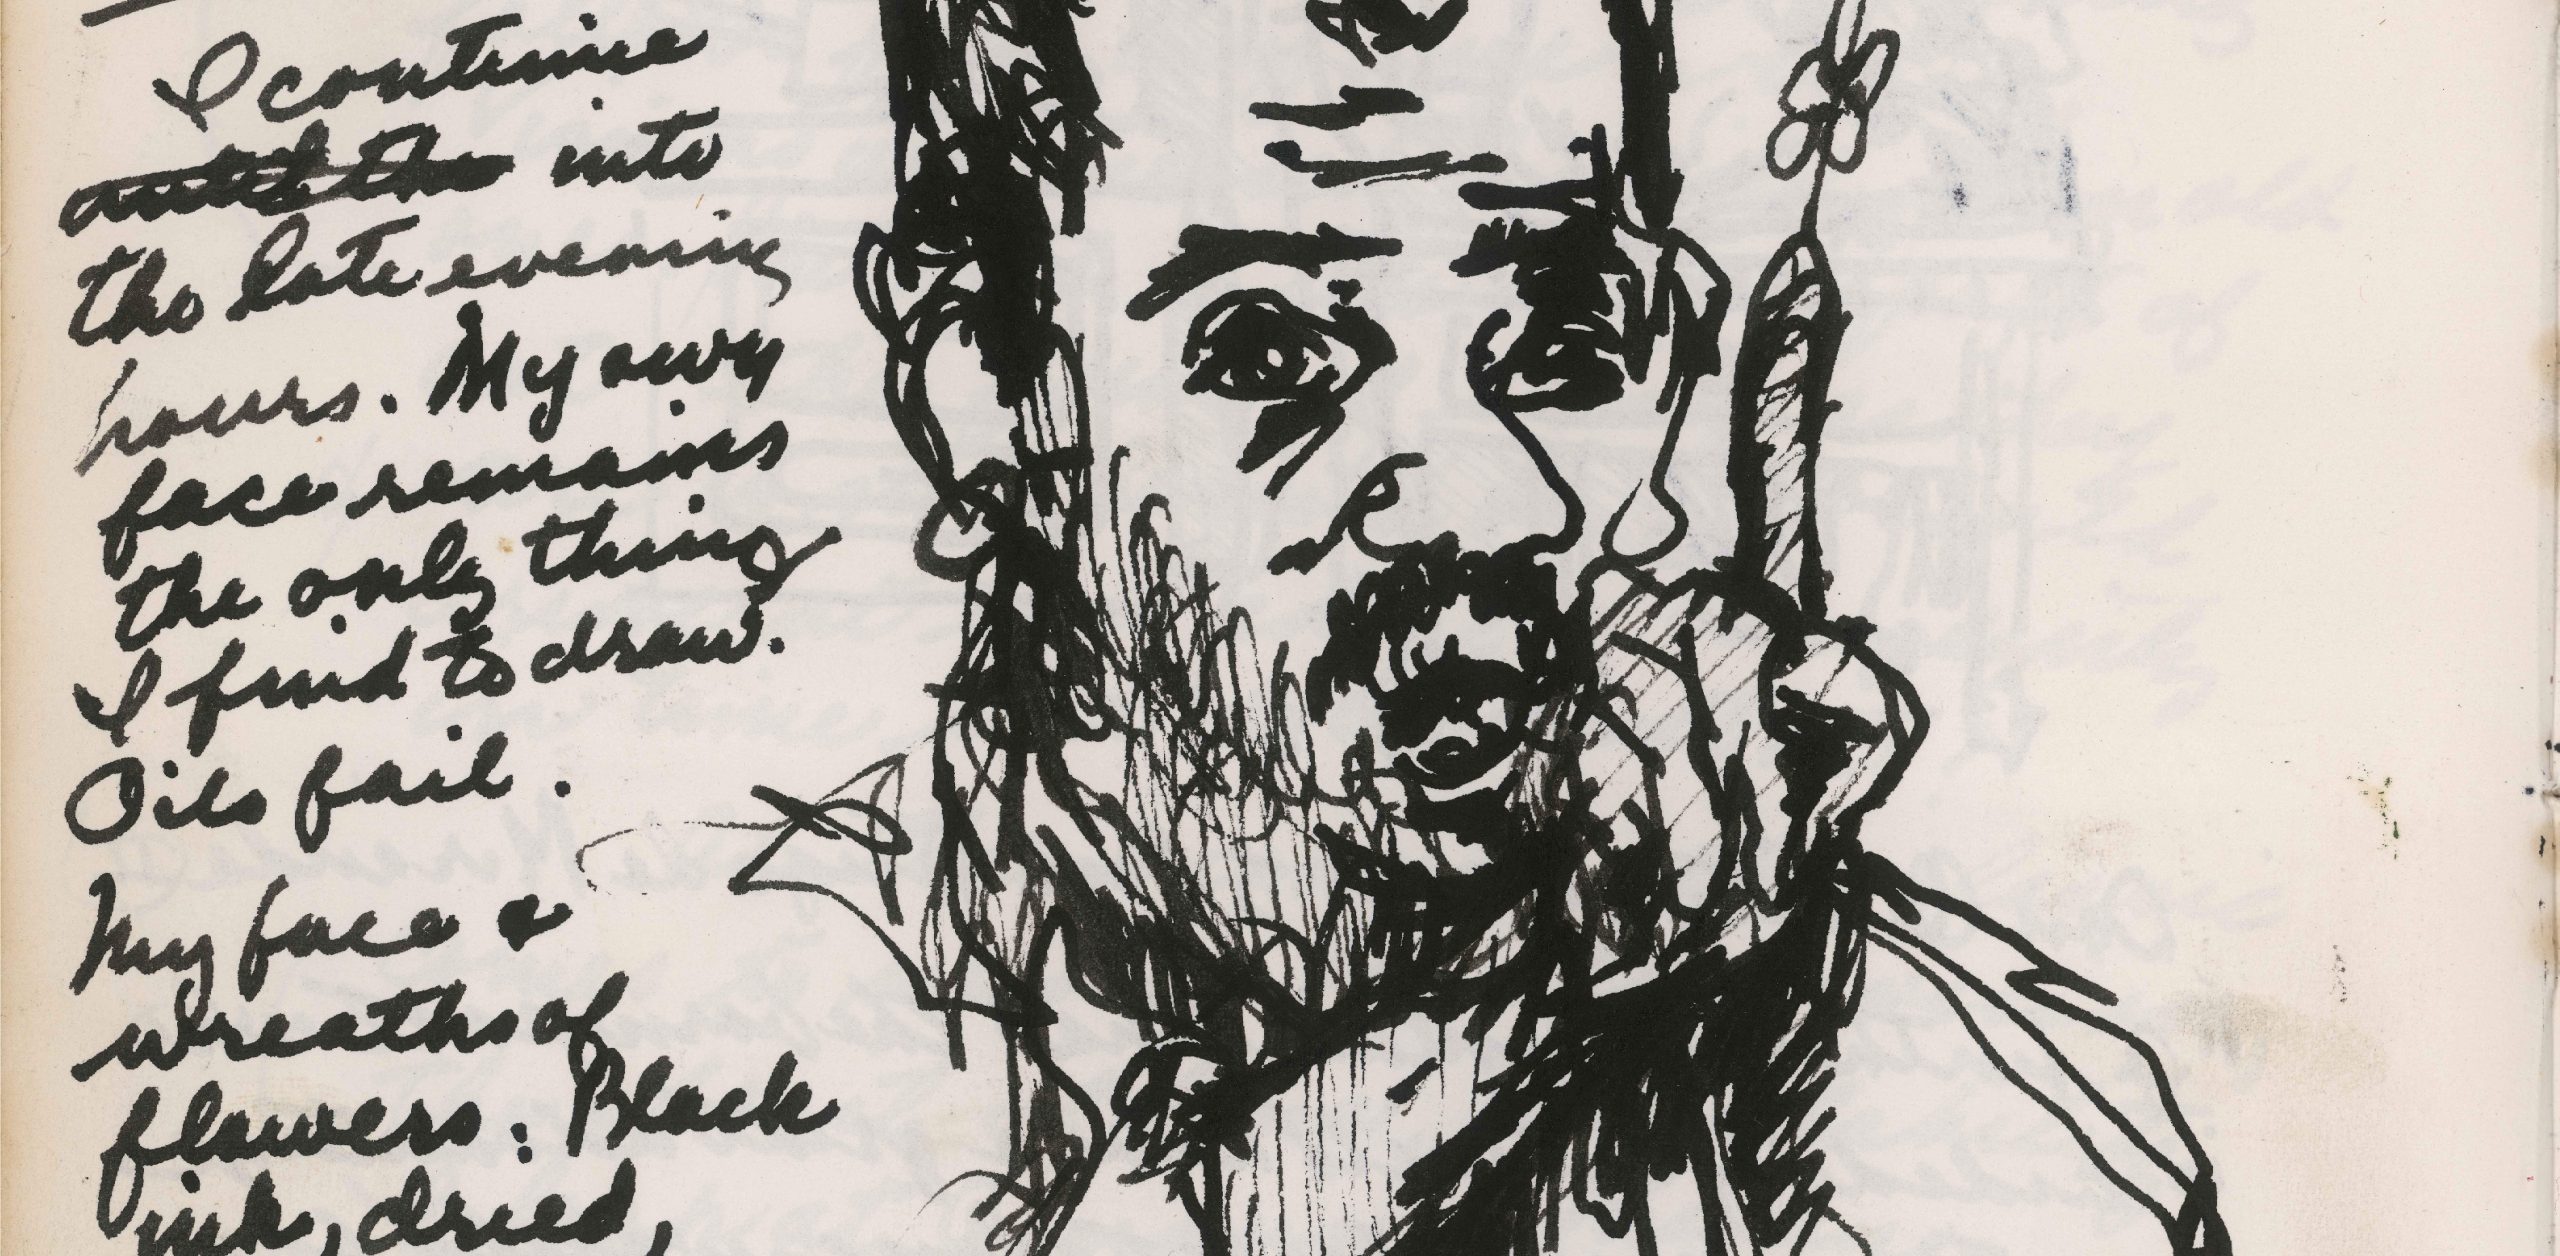 I continue
until the into
the late evening
hours. My own
face remains
the only thing
I find to draw.
Oils fail.
My face &
wreaths of
flowers: Black
ink, dried,